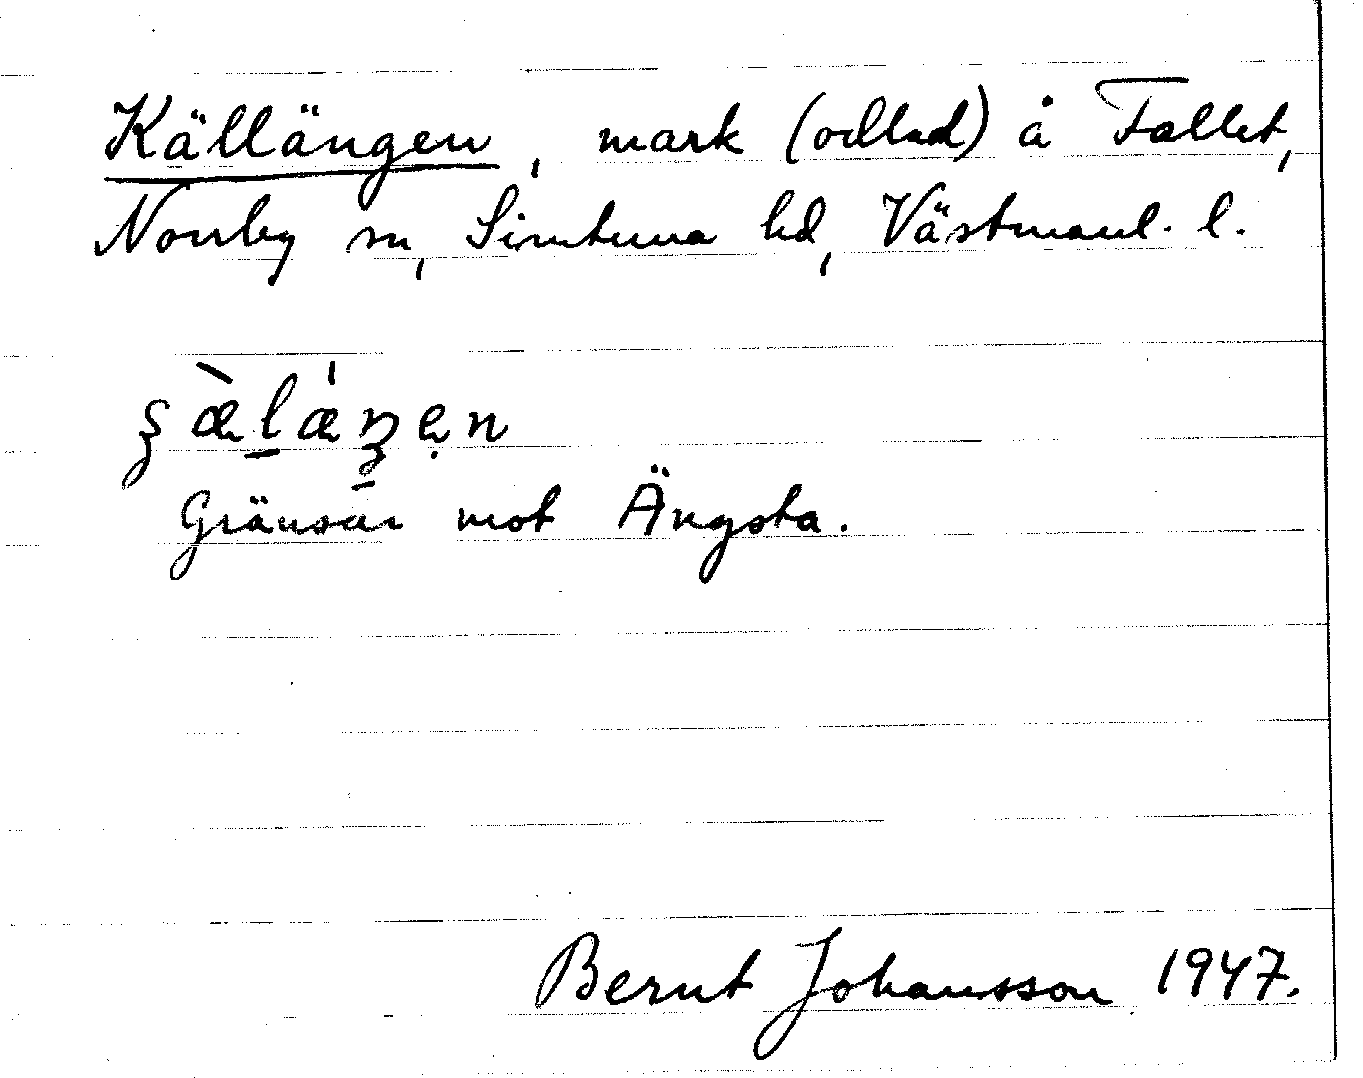 Källängen, mark (odlad) å Fallet,
Norrby sn, Simtuna hd, Västmanl. l.
ʂæ̀l̠æ̍ŋ̠ẹn
Gränsar mot Ängsta.
Bernt Johansson 1947.